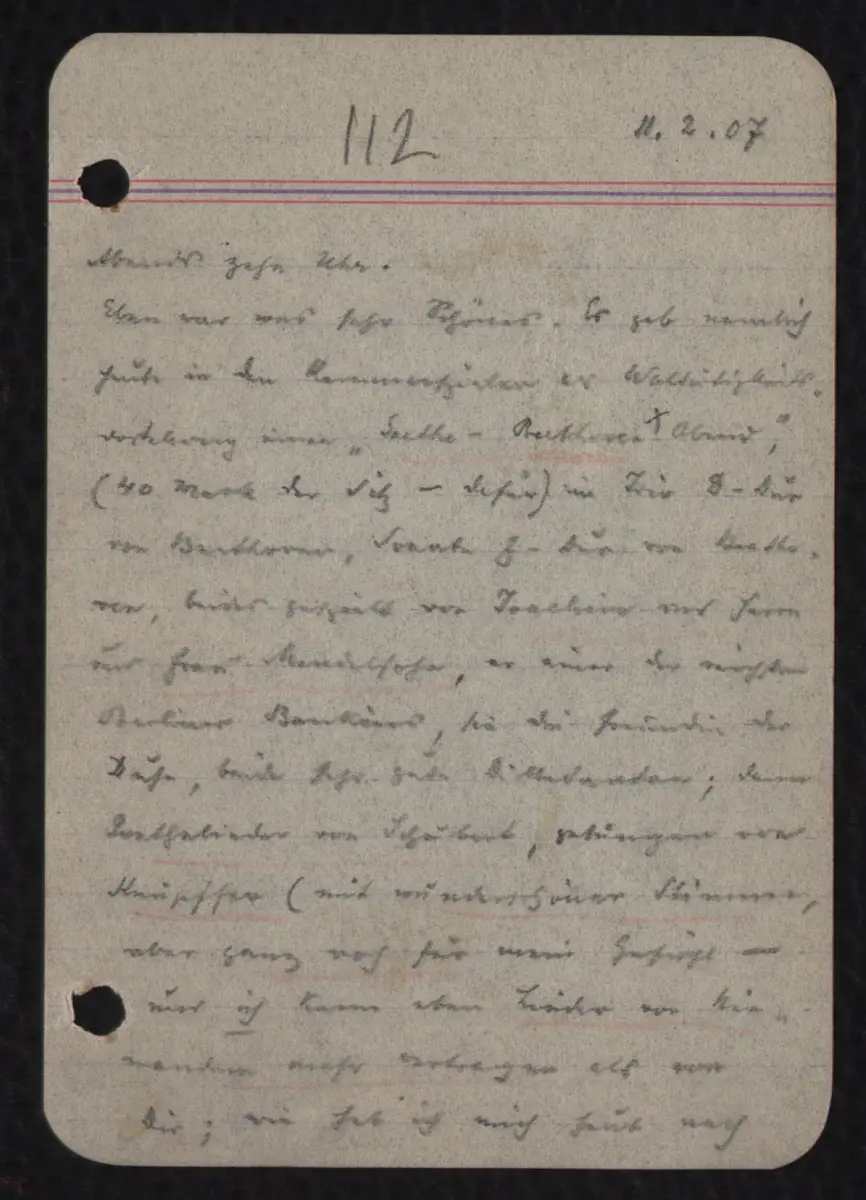 112
11.2.07
Abends zehn Uhr.
Eben war was sehr Schönes. Es gab nemlich
heute in den Kammerspielen als Woltätigkeits-
vorstellung einen „Goethe - Beethoven Abend",
(40 Mark der Sitz - dafür) ein Trio D-Dur
von Beethoven, Sonate F-Dur von Beetho-
ven, beides gespielt von Joachim und Herrn
und Frau Mendelsohn, er einer der reichsten
Berliner Bankiers, sie die Freundin der
Duse, beide sehr gute Dilletanten; dann
Goethelieder von Schubert, gesungen von
Knüpffer (mit wunderschöner Stimme,
aber ganz roh für mein Gefühl -
und ich kann eben Lieder von Nie-
mandem mehr vertragen als von
Dir; wie hab ich mich heute nach